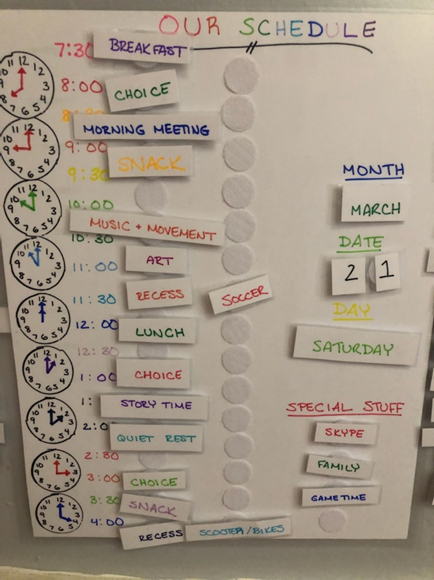 OUR SCHEDULE
7:30 BREAKFAST
8:00 CHOICE
8:30
MORNING MEETING
9:00 SNACK
9:30
10:00
MUSIC + MOVEMENT
10:30 ART
11:00
11:30 RECESS SOCCER
12:00 LUNCH
12:30
1:00 CHOICE
1: STORY TIME
2:0 QUIET REST
2:30
3:00 CHOICE
3:30 SNACK
4:00 RECESS SCOOTER/BIKES
MONTH
MARCH
DATE
2 1
DAY
SATURDAY
SPECIAL STUFF
SKYPE
FAMILY
GAMETIME